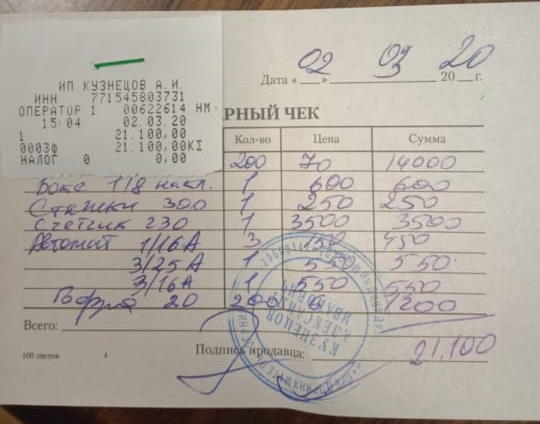 ИП КУЗНЕЦОВ А.И.
ИНН 771545803731
ОПЕРАТОР 1 00622614 НМ
15:04 02.03.20
1 21.100,00
0003ф 21.100,00КΣ
НАЛОГ 0 0,00
Дата « 02 » 03 20 20 г.
РНЫЙ ЧЕК
Кол-во Цена Сумма
200 70 14000
Бокс 1/8 накл. 1 600 600
Стяжки 300 1 250 250
Счетчик 230 1 3500 3500
Автомат 1/16А 3 150 450
3/25А 1 550 550
3/16А 1 550 550
Гофра 20 200 6 1200
Всего:
100 листов
Подпись продавца: 21.100
КУЗНЕЦОВ
АЛЕКСАНДР
ИВАНОВИЧ